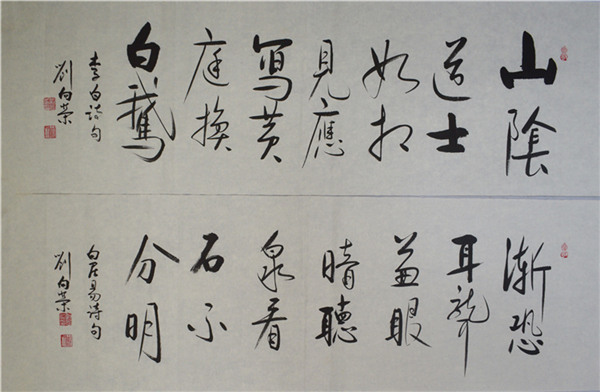 山陰
道士
如相
見應
寫黄
庭換
白鵝
李白诗句
劉向榮
漸恐
耳聾
兼眼
暗聽
泉看
石不
分明
白居易诗句
劉向榮